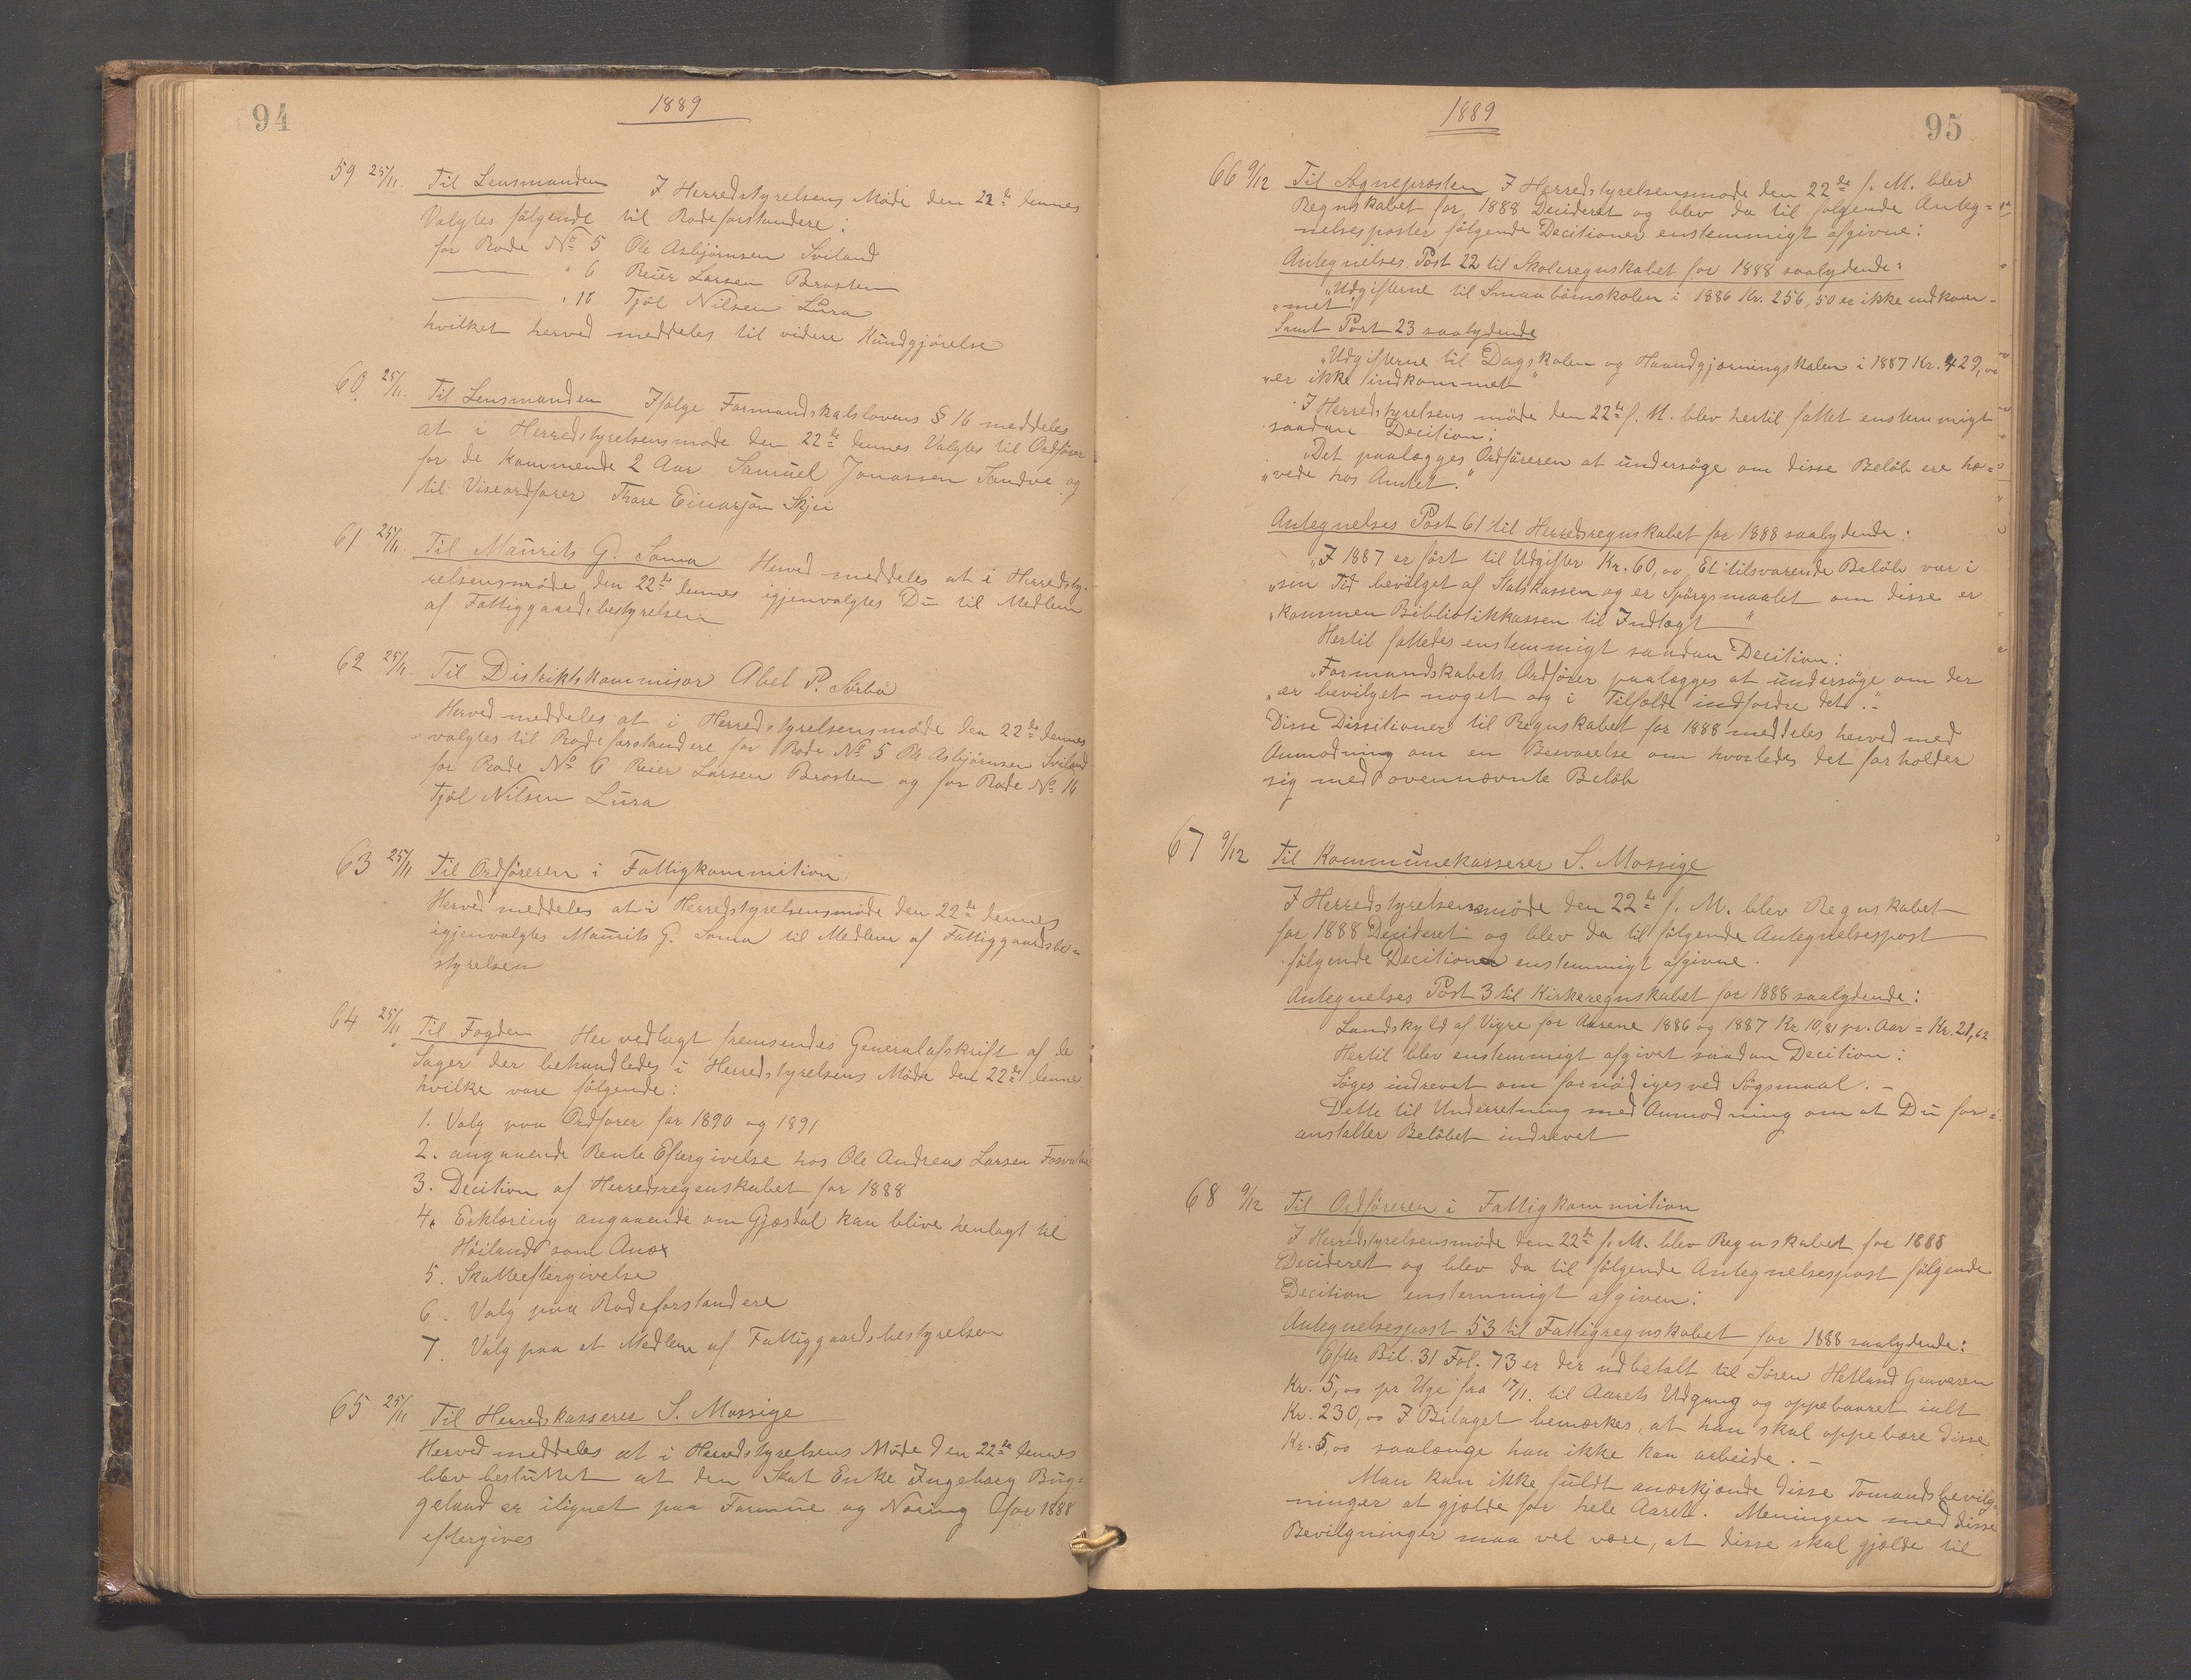 94
1889
59 25/11. Til Lensmanden I Herredstyrelsens Møde den 22de dennes
Valgtes følgende til Rodeforstandere:
for Rode No 5 Ole Asbjørnsen Sviland
" 6 Reier Larsen Brasten
" 16 Tjøl Nilsen Lura
hvilket herved meddeles til videre Kundgjørelse
60 25/11. Til Lensmanden Ifølge Formandskabslovens § 16 meddeles
at i Herredstyrelsensmøde den 22de dennes Valgtes til Ordfører
for de kommende 2 Aar Samuel Jonassen Sandve og
til Viseordfører Thore Einarsøn Skjei
61 25/11. Til Maurits G. Soma Herved meddeles at i Herredsty-
relsensmøde den 22de dennes igjenvalgtes Du til Medlem
af Fattiggaardsbestyrelsen
62 25/11. Til Distriktskommisær Abel P. Sørbø
Herved meddeles at i Herredstyrelsensmøde den 22de dennes
valgtes til Rodeforstandere for Rode No 5 Ole Asbjørnsen Sviland
for Rode No 6 Reier Larsen Brasten og for Rode No 16
Tjøl Nilsen Lura
63 25/11 Til Ordføreren i Fattigkommition
Herved meddeles at i Herredstyrelsensmøde den 22de dennes
igjenvalgtes Maurits G. Soma til Medlem af Fattiggaardsbe=
styrelsen
64 25/11 Til Fogden Her vedlagt fremsendes Generalafskrift af de
Sager der behandledes i Herredstyrelsens Møde den 22de denne
hvilke vare følgende:
1. Valg paa Ordfører for 1890 og 1891
2. angaaende Rente Eftergivelse hos Ole Andreas Larsen
3. Decition af Herredsregenskabet for 1888
4. Erklæring angaaende om Gjæsdal kan blive henlagt til
Høiland som Anex
5. Skatteeftergivelse
6. Valg paa Rodeforstandere
7. Valg paa et Medlem af Fattiggaardsbestyrelsen
65 25/11 Til Herredskasserer S. Mossige
Herved meddeles at i Herredstyrelsens Møde den 22de dennes
blev besluttet at den Skat Enke Ingeborg Byg=
geland er ilignet paa Formue og Næring for 1888
eftergives
95
1889
66 9/12 Til Sognepræsten I Herredstyrelsensmøde den 22de f. M. blev
Regnskabet for 1888 Decideret og blev da til følgende Anteg=
nelsesposter følgende Decitioner enstemmigt afgivne:
Antegnelses Post 22 til Skoleregnskabet for 1888 saalydende:
"Udgifterne til Smaabørnskolen i 1886 Kr. 256,50 er ikke indkom-
"met"
Samt Post 23 saalydende
"Udgifterne til Dagskolen og Haandgjærningskolen i 1887 Kr. 429,00
"er ikke indkommet"
I Herredstyrelsens møde den 22de f. M. blev hertil fattet enstemmigt
saadan Decition:
"Det paalægges Ordføreren at undersøge om disse Beløb ere hæ=
"vede hos Amtet."
Antegnelses Post 61 til Herredsregnskabet for 1888 saalydende:
"I 1887 er ført til Udgifter Kr. 60,00, Et tilsvarende Beløb var i
"sin Tid bevilget af Statskassen og er Spørgsmaalet om disse er
"kommen Bibliotikkassen til Indtægt"
Hertil fattedes enstemmigt saadan Decition:
"Formandskabets Ordfører paalægges at undersøge om der
"er bevilget noget og i Tilfælde indfordre det."-
Disse Dissitioner til Regnskabet for 1888 meddeles herved med
Anmodning om en Besvarelse om hvorledes det forholder
sig med ovennævnte Beløb
67 9/12 Til Kommunekasserer S. Mossige
I Herredstyrelsensmøde den 22de f. M. blev Regnskabet
for 1888 Decideret og blev da til følgende Antegnelsespost
følgende Decition enstemmigt afgivne.
Antegnelses Post 3 til Kirkeregnskabet for 1888 saalydende:
Landskyld af Vigre for Aarene 1886 og 1887 Kr 10,81 pr. Aar = Kr. 21,62
Hertil blev enstemmigt afgivet saadan Decition:
Søges indrevet om fornødiges ved Søgsmaal. -
Dette til Underretning med Anmodning om at Du for=
anstalter Beløbet indrevet
68 9/12 Til Ordføreren i Fattigkommition
I Herredstyrelsensmøde den 22de f. M. blev Regnskabet for 1888
Decideret og blev da til følgende Antegnelsespost følgende
Decition enstemmigt afgiven:
Antegnelsespost 53 til Fattigregnskabet for 1888 saalydende:
Efter Bil. 31 Fol. 73 er der udbetalt til Søren Hetland Graveren
Kr. 5,00 pr Uge fra 17/1. til Aarets Udgang og oppebaaret ialt
Kr. 230,00 I Bilaget bemærkes, at han skal oppebære disse
Kr. 5,00 saalænge han ikke kan arbeide. -
Man kan ikke fuldt anærkjænde disse Tomandsbevilg-
ninger at gjælde for hele Aaret. Meningen med disse
Bevilgninger maa vel være, at disse skal gjælde til